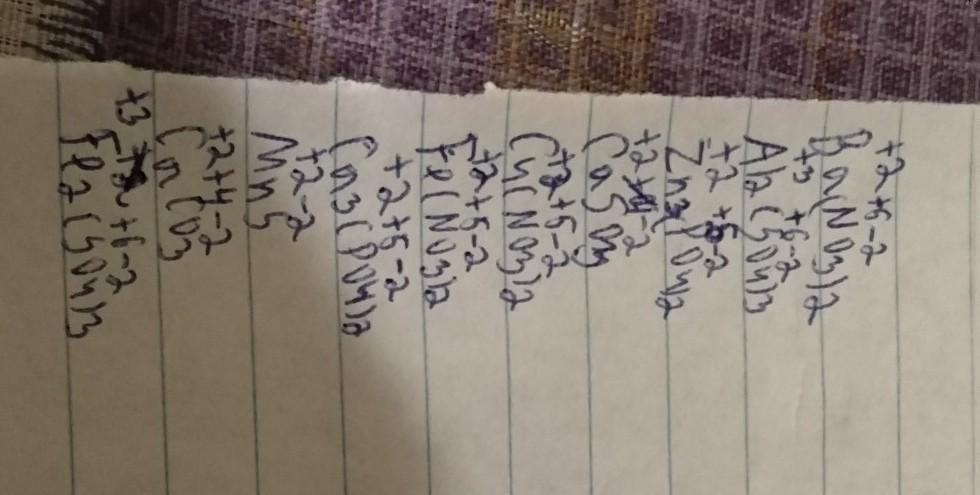 +2+5-2
Ba(NO3)2
+3 +6-2
Al2(SO4)3
+2 +5-2
Zn3(PO4)2
+2+4-2
CaSO3
+2+5-2
Cu(NO3)2
+2+5-2
Fe(NO3)2
+2+5-2
Ca3(PO4)2
+2-2
MnS
+2+4-2
CaCO3
+3 +6-2
Fe2(SO4)3